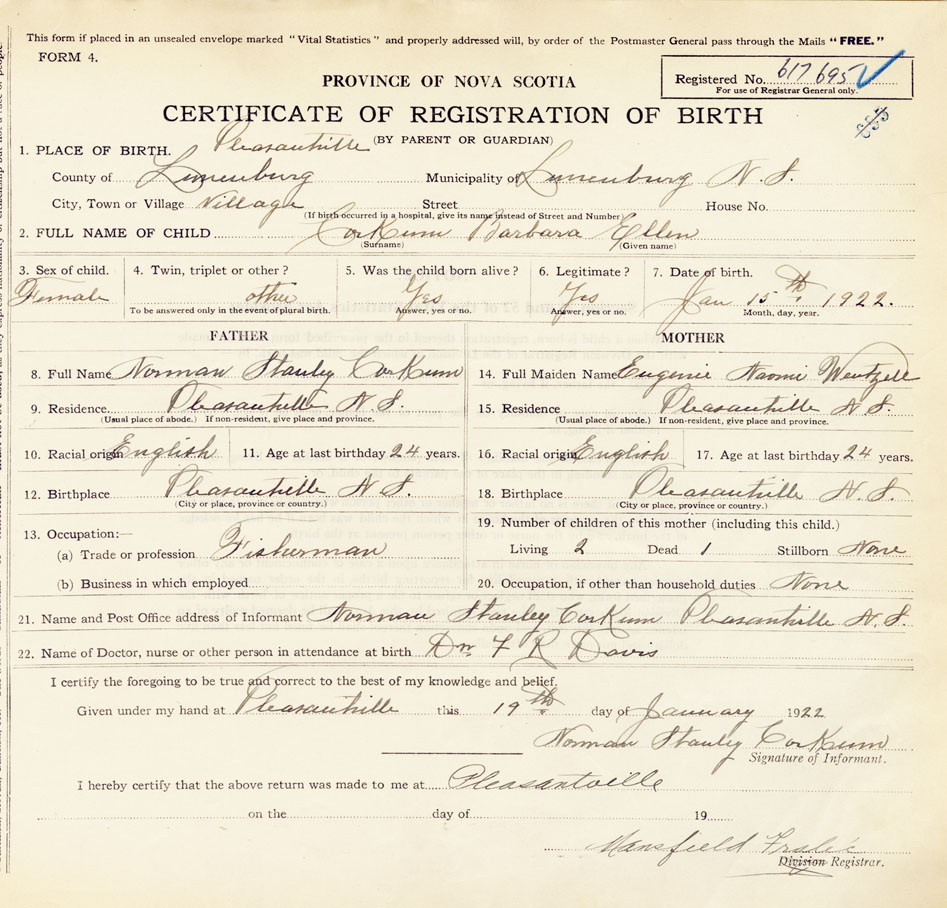 This form if placed in an unsealed envelope marked "Vital Statistics" and properly addressed will, by order of the Postmaster General pass through the Mails "FREE."
FORM 4.
Registered No. 617 695
For use of Registrar General only.
PROVINCE OF NOVA SCOTIA
CERTIFICATE OF REGISTRATION OF BIRTH
(BY PARENT OR GUARDIAN)
1. PLACE OF BIRTH. Pleasantville
County of Lunenburg Municipality of Lunenburg N. S.
City, Town or Village Village Street House No.
(If birth occurred in a hospital, give its name instead of Street and Number)
2. FULL NAME OF CHILD CorKum Barbara Ellen
(Surname) (Given name)
3. Sex of child. 4. Twin, triplet or other? 5. Was the child born alive? 6. Legitimate? 7. Date of birth.
Female other Yes Yes Jan 15th 1922.
To be answered only in the event of plural birth. Answer, yes or no. Answer, yes or no. Month, day, year.
FATHER MOTHER
8. Full Name Norman Stanley CorKum 14. Full Maiden Name Eugenie Naomi Wentzell
9. Residence Pleasantville N.S. 15. Residence Pleasantville N.S.
(Usual place of abode.) If non-resident, give place and province. (Usual place of abode.) If non-resident, give place and province.
10. Racial origin English 11. Age at last birthday 24 years. 16. Racial origin English 17. Age at last birthday 24 years.
12. Birthplace Pleasantville N.S. 18. Birthplace Pleasantville N.S.
(City or place, province or country.) (City or place, province or country.)
13. Occupation:— 19. Number of children of this mother (including this child.)
(a) Trade or profession Fisherman Living 2 Dead 1 Stillborn None
(b) Business in which employed 20. Occupation, if other than household duties None
21. Name and Post Office address of Informant Norman Stanley CorKum Pleasantville N.S.
22. Name of Doctor, nurse or other person in attendance at birth Dr. F R Davis
I certify the foregoing to be true and correct to the best of my knowledge and belief.
Given under my hand at Pleasantville this 19th day of January 1922
Norman Stanley CorKum
Signature of Informant.
I hereby certify that the above return was made to me at Pleasantville
on the day of 19
Mansfield
Division Registrar.